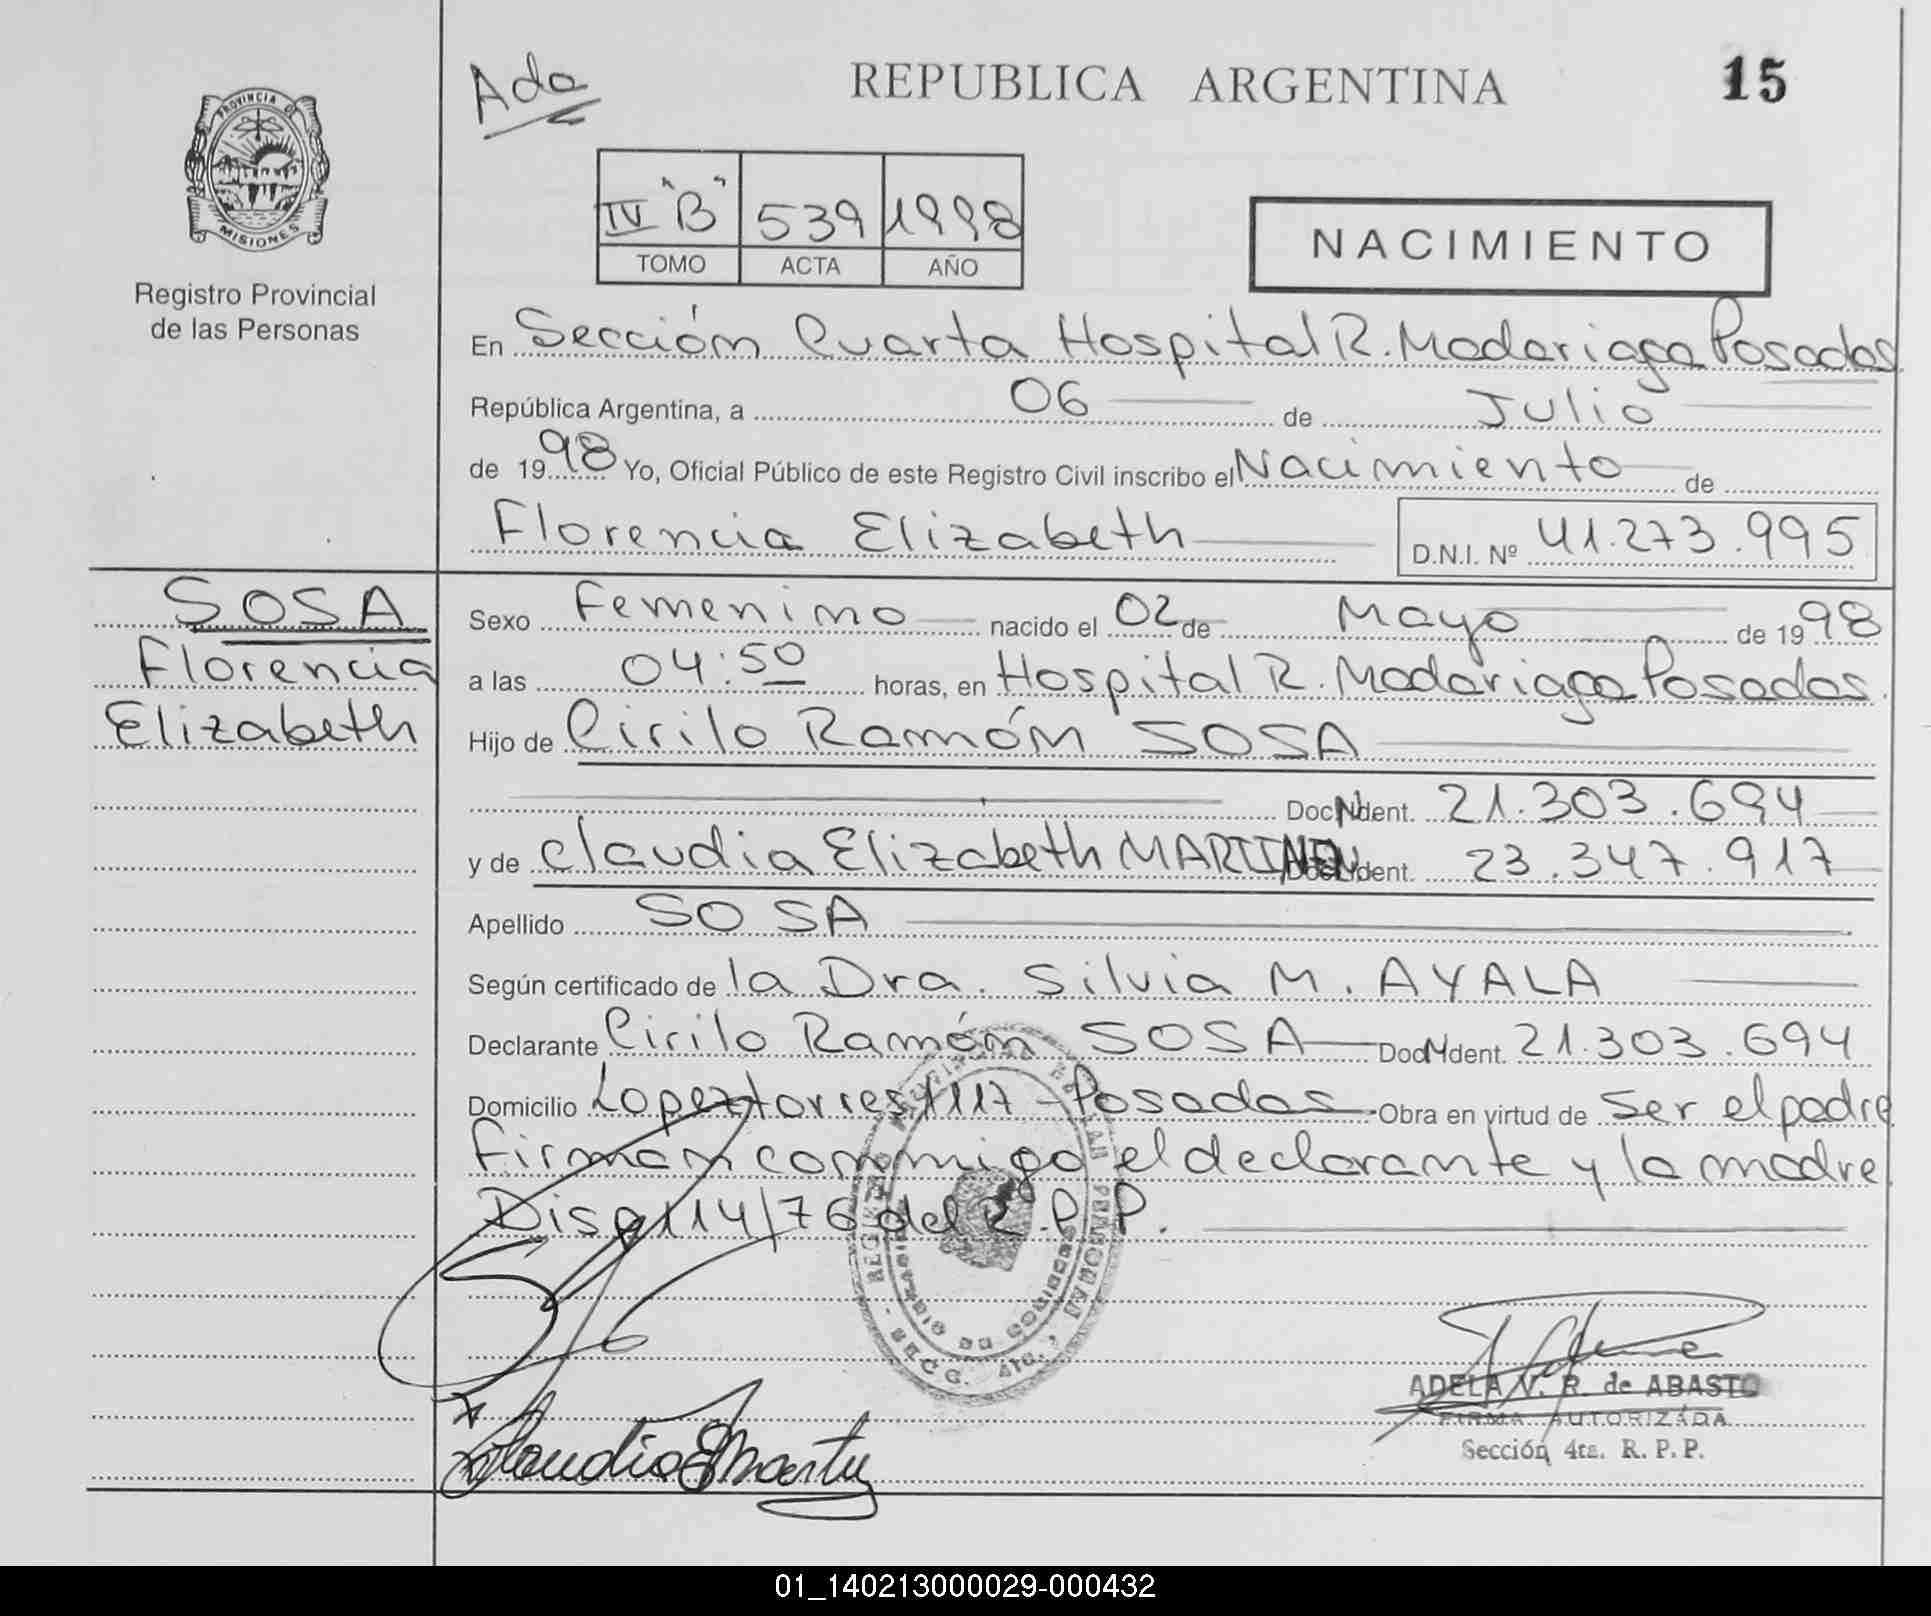 Ada
REPUBLICA ARGENTINA
15
PROVINCIA DE
MISIONES
Registro Provincial
de las Personas
IV "B" 539 1998
TOMO ACTA AÑO
NACIMIENTO
En Sección Cuarta Hospital R. Madariaga Posadas
República Argentina, a 06 de Julio
de 1998 Yo, Oficial Público de este Registro Civil inscribo el Nacimiento de
Florencia Elizabeth D.N.I. Nº 41.273.995
SOSA
Florencia
Elizabeth
Sexo Femenino nacido el 02 de Mayo de 1998
a las 04:50 horas, en Hospital R. Madariaga Posadas.
Hijo de Cirilo Ramón SOSA
Doc. Ident. 21.303.694
y de Claudia Elizabeth Doc. Ident. 23.347.917
Apellido SOSA
Según certificado de la Dra. Silvia M. AYALA
Declarante Cirilo Ramón SOSA Doc. Ident. 21.303.694
Domicilio Lopez torres 1117 - Posadas. Obra en virtud de ser el padre
Firman conmigo el declarante y la madre
Disp 114/76 del R.P.P.
ADELA V. R. de ABASTO
FIRMA AUTORIZADA
Sección 4ta. R. P. P.
01_140213000029-000432